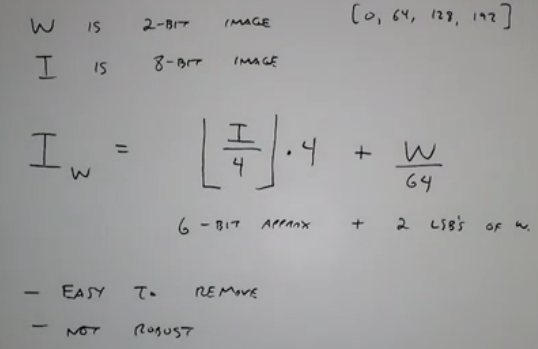 W IS 2-BIT IMAGE [0, 64, 128, 192]
I IS 8-BIT IMAGE
I_W = ⌊I/4⌋ · 4 + W/64
6-BIT APPROX + 2 LSB'S OF W.
- EASY TO REMOVE
- NOT ROBUST